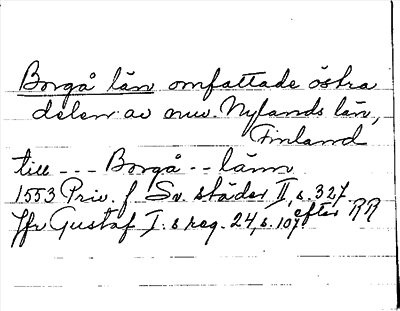 Borgå län omfattade östra
delen av nuv. Nylands län,
Finland
till --- Borgå -- länn
1553 Priv. f. Sv. städer II, s. 327.
Jfr Gustaf I:s reg. 24, s. 107 efter RR